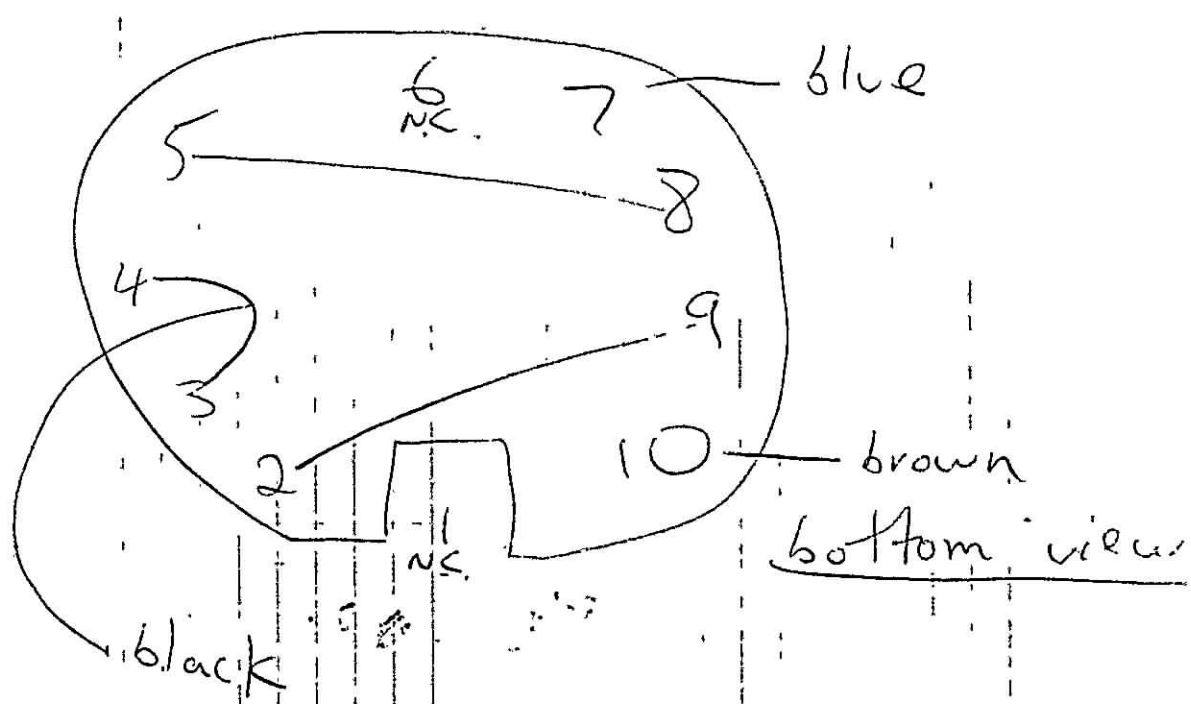 6 7 blue
N.C.
5
8
4
9
3
10 brown
2
1
N.C.
bottom view
black